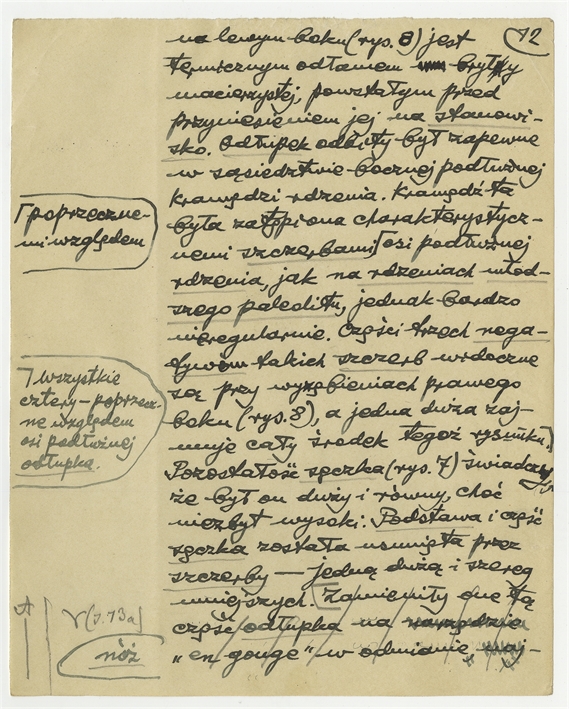 12
na lewym boku (rys. 8) jest
termicznym odłamem bryły
macierzystej, powstałym przed
przyniesieniem jej na stanowi-
sko. Odłupek odbity był zapewne
w sąsiedztwie bocznej podłużnej
krawędzi rdzenia. Krawędź ta
była zatępiona charakterystycz-
nemi szczerbami ⌈osi podłużnej
rdzenia, jak na rdzeniach młod-
szego paleolitu, jednak bardzo
nieregularnie. Części trzech nega-
tywów takich szczerb widoczne
są przy wyrębieniach prawego
boku (rys. 8), a jedna duża zaj-
muje cały środek tegoż rysunku.⌉
Pozostałość sęczka (rys. 7) świadczy,
że był on duży i równy, choć
niezbyt wysoki. Podstawa i część
sęczka została usunięta przez
szczerby — jedną dużą i szereg
mniejszych. [Zamieniły one tą
część odłupka na narzędzie
„en gouge" w odmianie
⌈poprzeczne-
mi względem
⌉ wszystkie
cztery – poprzecz-
ne względem
osi podłużnej
odłupka.
A
V (s. 13a)
nóż